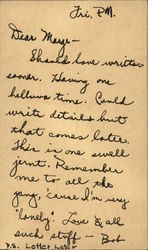 Fri. P.M.
Dear Marge -
Should have written
sooner. Having one
helluva time. Could
write details but
that comes later.
This is one swell
joint. Remember
me to all the
gang, 'cause I'm very
"lonely". Love & all
such stuff - Bob
P.S. Letter later